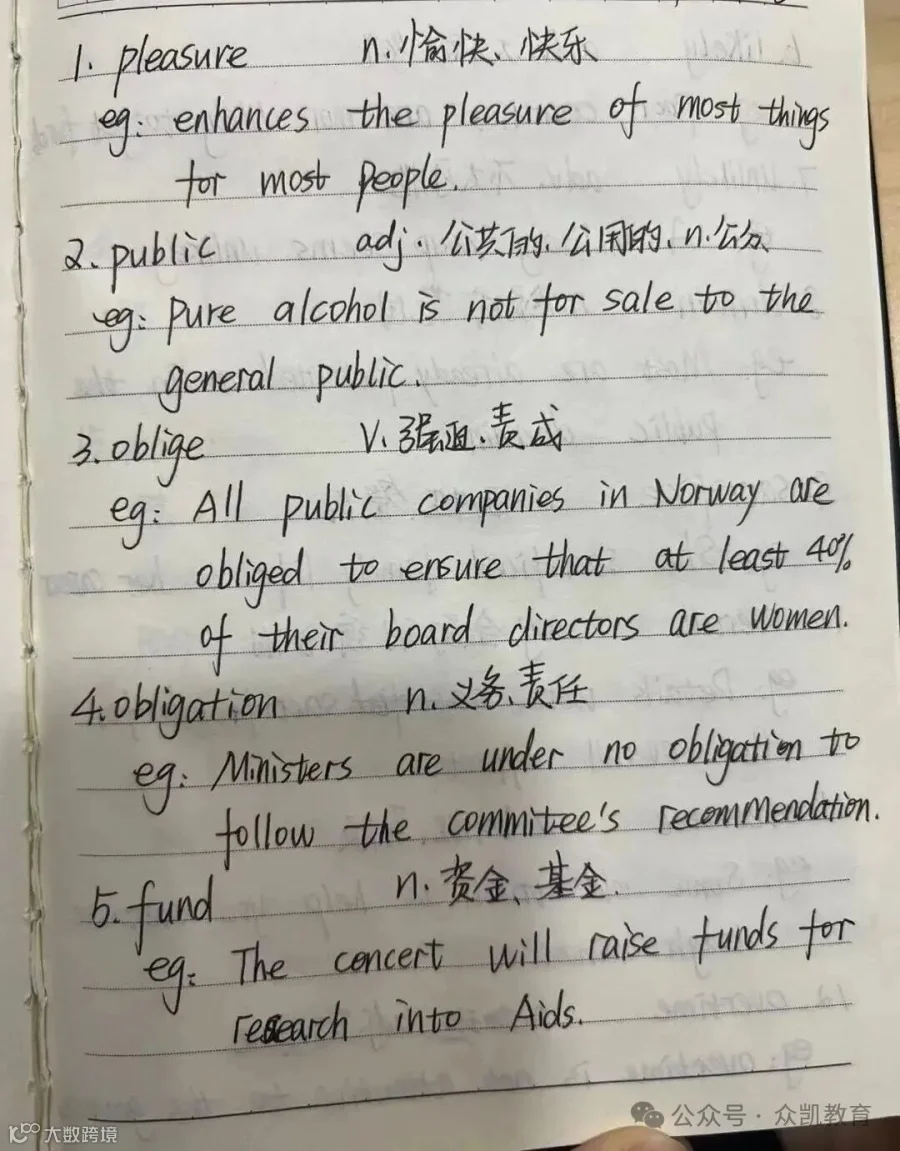 1. pleasure n. 愉快、快乐
eg: enhances the pleasure of most things
for most people.
2. public adj. 公共的、公用的、n. 公众
eg: Pure alcohol is not for sale to the
general public.
3. oblige v. 强迫、责成
eg: All public companies in Norway are
obliged to ensure that at least 40%
of their board directors are women.
4. obligation n. 义务、责任
eg: Ministers are under no obligation to
follow the commitee's recommendation.
5. fund n. 资金、基金.
eg: The concert will raise funds for
research into Aids.
公众号·众凯教育
大数跨境